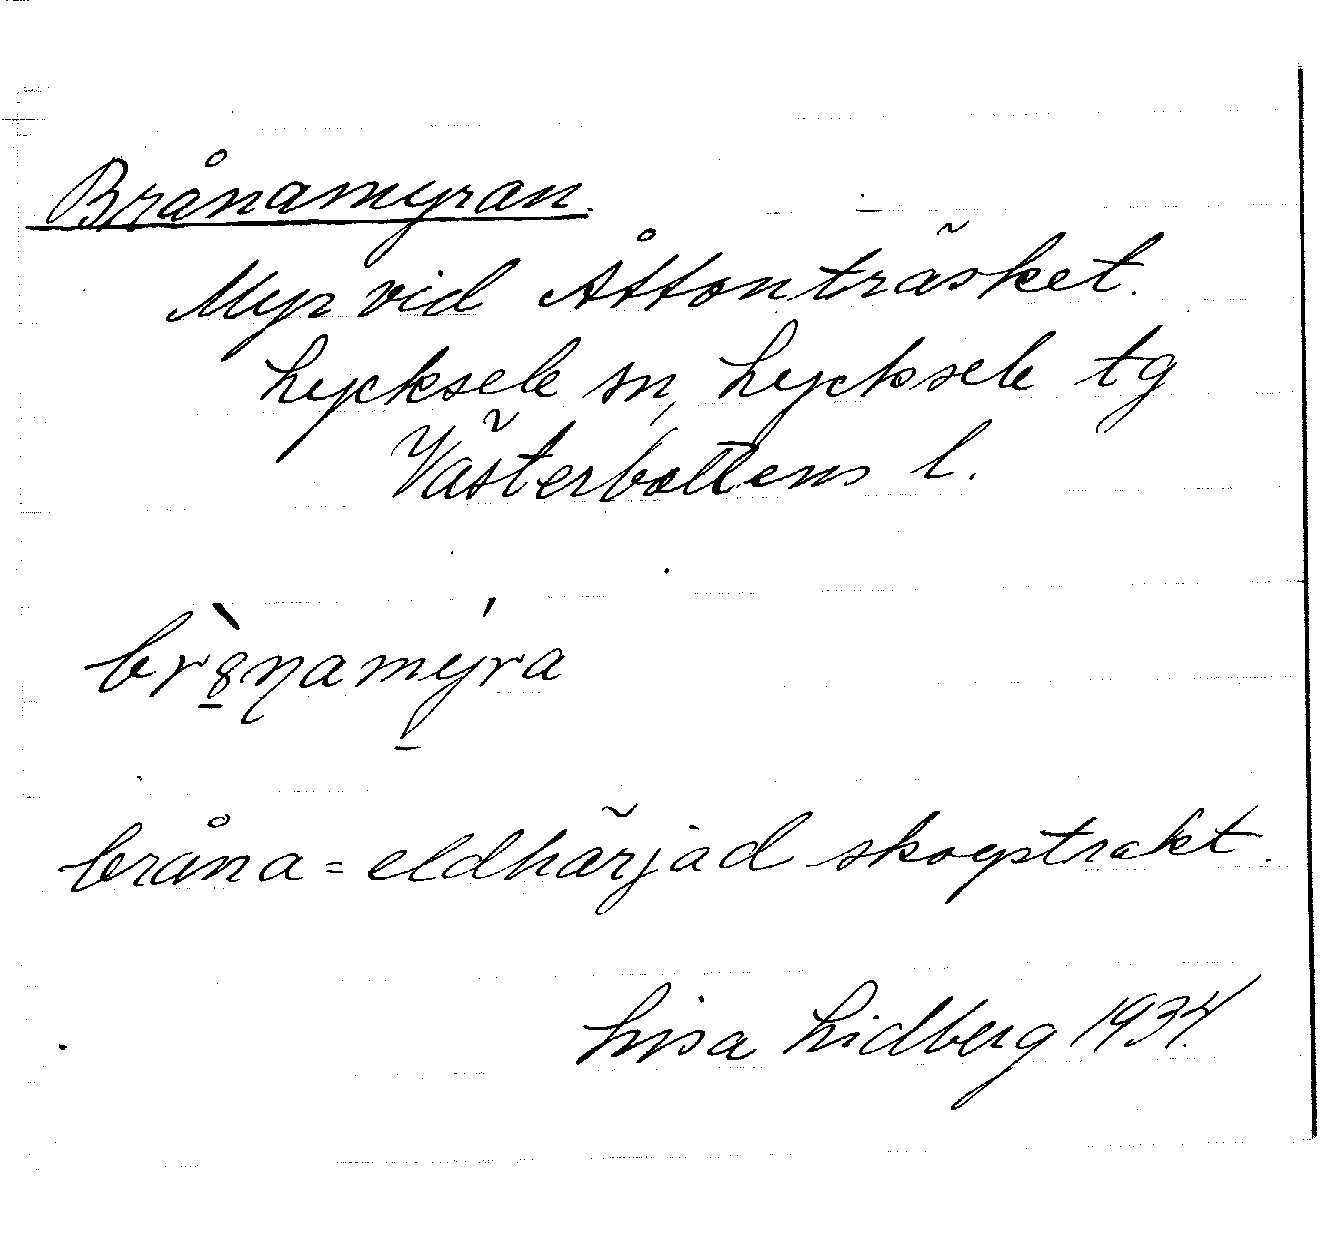 Brånamyran.
Myr vid Åttonträsket.
Lycksele sn, Lycksele tg
Västerbottens l.
bråna = eldhärjad skogstrakt.
Lisa Lidberg 1934.